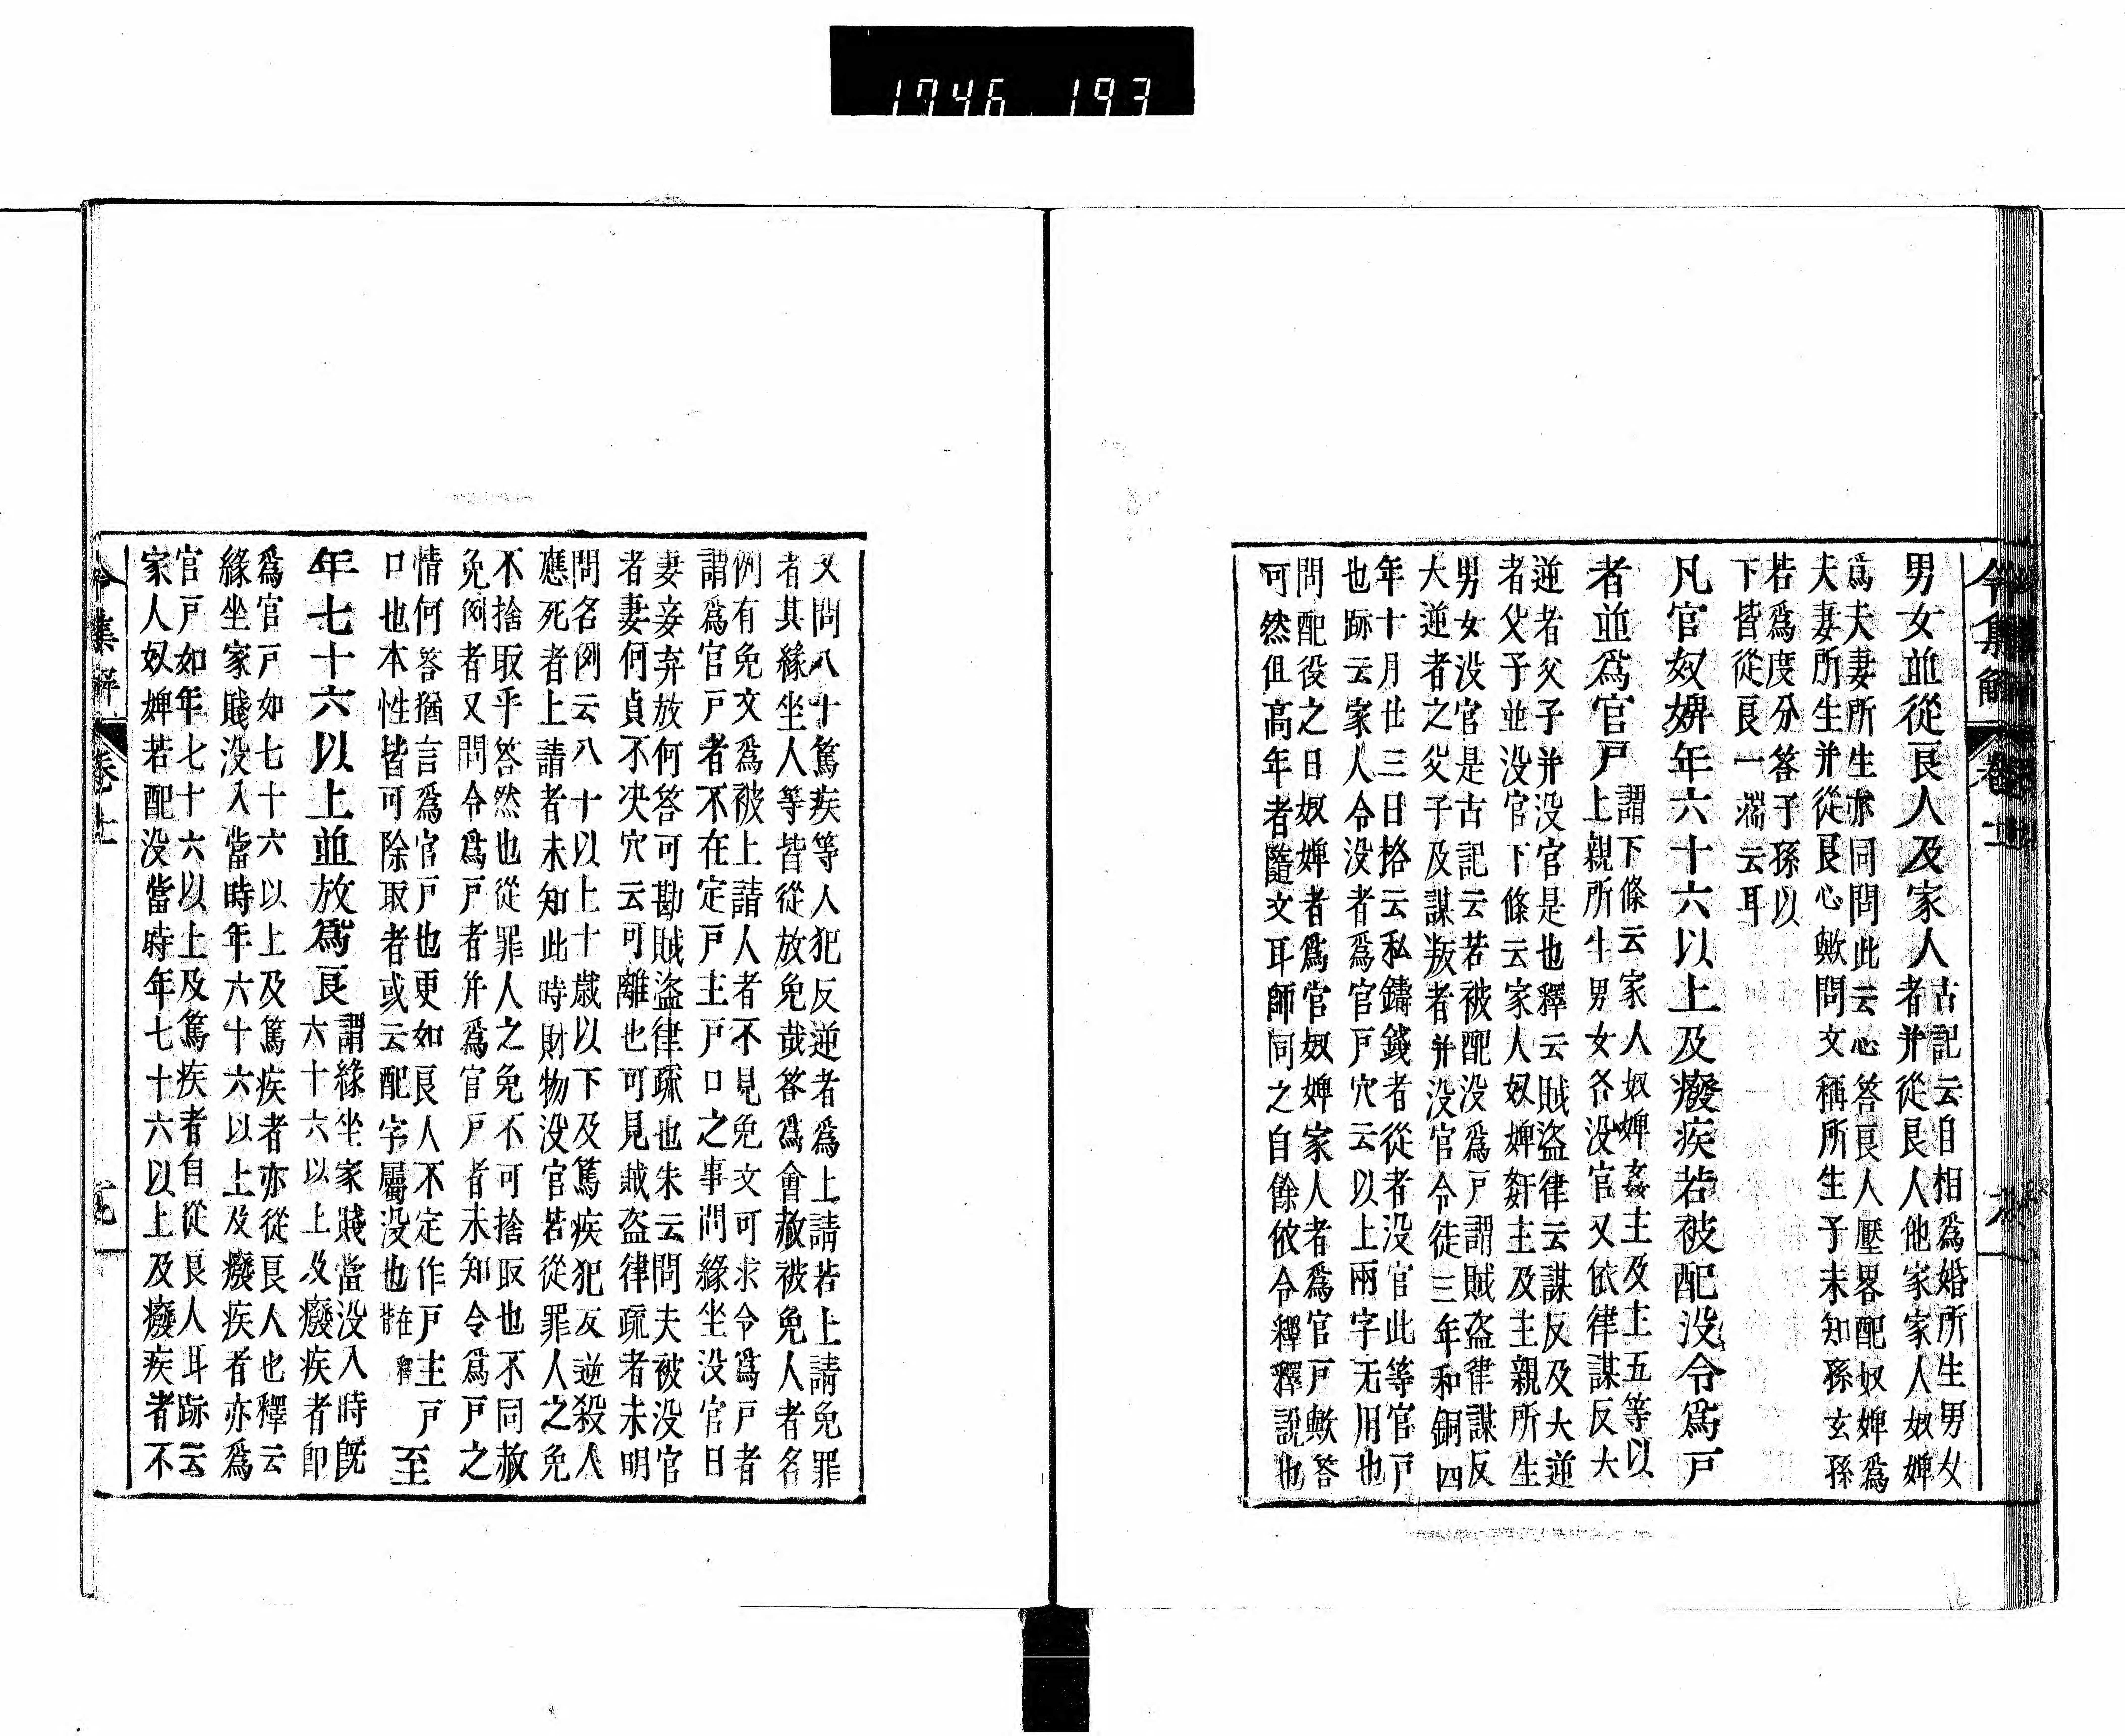 1746 193
令集解 卷十一
男女並從良人及家人
古記云自相爲婚所生男女
者并從良人他家家人奴婢
爲夫妻所生亦同問此云心答良人壓畧配奴婢爲
夫妻所生并從良心歟問文稱所生子未知孫玄孫
若爲度分答子孫以
下皆從良一端云耳
凡官奴婢年六十六以上及癈疾若被配没令爲戸
者並爲官戸
謂下條云家人奴婢姦主及主五等以
上親所生男女各没官又依律謀反大
逆者父子并没官是也釋云賊盗律云謀反及大逆
者父子並没官下條云家人奴婢姧主及主親所生
男女没官是古記云若被配没爲戸謂賊盗律謀反
大逆者之父子及謀叛者并没官令徒三年和銅四
年十月廿三日格云私鑄錢者從者没官此等官戸
也跡云家人令没者爲官戸穴云以上兩字无用也
問配役之日奴婢者爲官奴婢家人者爲官戸歟答
可然但高年者隨文耳師同之自餘依令釋釋説也
又問八十篤疾等人犯反逆者爲上請若上請免罪
者其緣坐人等皆從放免哉答爲會赦被免人者名
例有免文爲被上請人者不見免文可求令爲戸者
謂爲官戸者不在定戸主戸口之事問緣坐没官日
妻妾弃放何答可勘賊盗律疏也朱云問夫被没官
者妻何貞不决穴云可離也可見賊盗律疏者未明
問名例云八十以上十歳以下及篤疾犯反逆殺人
應死者上請者未知此時財物没官若從罪人之免
不捨取乎答然也從罪人之免不可捨取也不同赦
免例者又問令爲戸者并爲官戸者未知令爲戸之
情何答猶言爲官戸也更如良人不定作戸主戸
口也本性皆可除取者或云配字屬没也
在釋
背
至
年七十六以上並放爲良
謂緣坐家賤當没入時旣
六十六以上及癈疾者即
爲官戸如七十六以上及篤疾者亦從良人也釋云
緣坐家賤没入當時年六十六以上及癈疾者亦爲
官戸如年七十六以上及篤疾者自從良人耳跡云
家人奴婢若配没當時年七十六以上及癈疾者不
令集解 卷十一